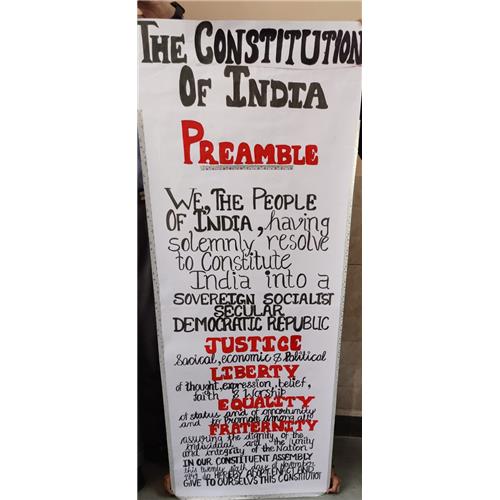 THE CONSTITUTION
OF INDIA
PREAMBLE
WE, THE PEOPLE
OF INDIA, having
solemnly resolve
to Constitute
India into a
SOVEREIGN SOCIALIST
SECULAR
DEMOCRATIC REPUBLIC
JUSTICE
Sacical, economic & Political
LIBERTY
of thought, expression, belief,
faith & Worship
EQUALITY
of status and of opportunity
and to Promote among all
FRATERNITY
assuring the dignity of the
individual and the unity
and integrity of the Nation
IN OUR CONSTITUENT ASSEMBLY
this twenty sixth day of November
HEREBY ADOPT, ENACT AND
GIVE TO OURSELVES THIS CONSTITUTION